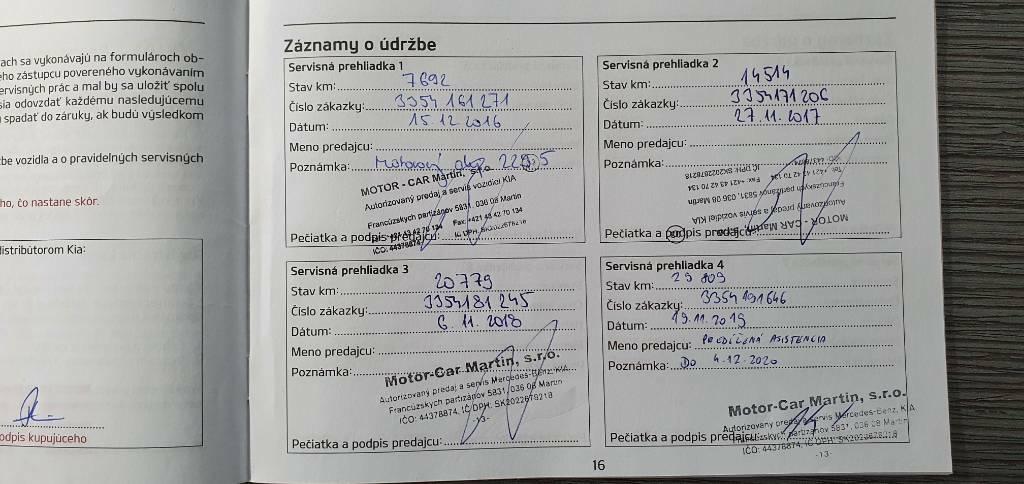 ach sa vykonávajú na formulároch ob-
eho zástupcu povereného vykonávaním
ervisných prác a mal by sa uložiť spolu
sia odovzdať každému nasledujúcemu
spadať do záruky, ak budú výsledkom
be vozidla a o pravidelných servisných
ho, čo nastane skôr.
distribútorom Kia:
odpis kupujúceho
Záznamy o údržbe
Servisná prehliadka 1
Stav km: 7692
Číslo zákazky: 3354 161 271
Dátum: 15.12.2016
Meno predajcu:
Poznámka: Motorový
MOTOR - CAR Martin, s.r.o.
Autorizovaný predaj a servis vozidiel KIA
Francúzskych partizánov 5831, 036 08 Martin
Fax: +421 43 42 70 134
IČO: 44378874, IČ DPH: SK2022678218
Pečiatka a podpis predajcu:
Servisná prehliadka 2
Stav km: 14514
Číslo zákazky: 3354171206
Dátum: 27.11.2017
Meno predajcu:
Poznámka:
MOTOR - CAR Martin,
Autorizovaný predaj a servis vozidiel KIA
Francúzskych partizánov 5831, 036 08 Martin
Fax: +421 43 42 70 134
IČ DPH: SK2022678218
Pečiatka a podpis predajcu:
Servisná prehliadka 3
Stav km: 20779
Číslo zákazky: 3354181 245
Dátum: 6.11.2018
Meno predajcu:
Poznámka:
Motor-Car Martin, s.r.o.
Autorizovaný predaj a servis Mercedes-Benz, KIA
Francúzskych partizánov 5831, 036 08 Martin
IČO: 44378874, IČ DPH: SK2022678218
-13-
Pečiatka a podpis predajcu:
Servisná prehliadka 4
Stav km: 29 809
Číslo zákazky: 3354191646
Dátum: 19.11.2019
Meno predajcu: PREDĹŽENÁ ASISTENCIA
Poznámka: DO 4.12.2020
Motor-Car Martin, s.r.o.
Autorizovaný predaj a servis Mercedes-Benz, KIA
Francúzskych partizánov 5831, 036 08 Martin
IČO: 44378874, IČ DPH: SK2022678218
-13-
Pečiatka a podpis predajcu:
16